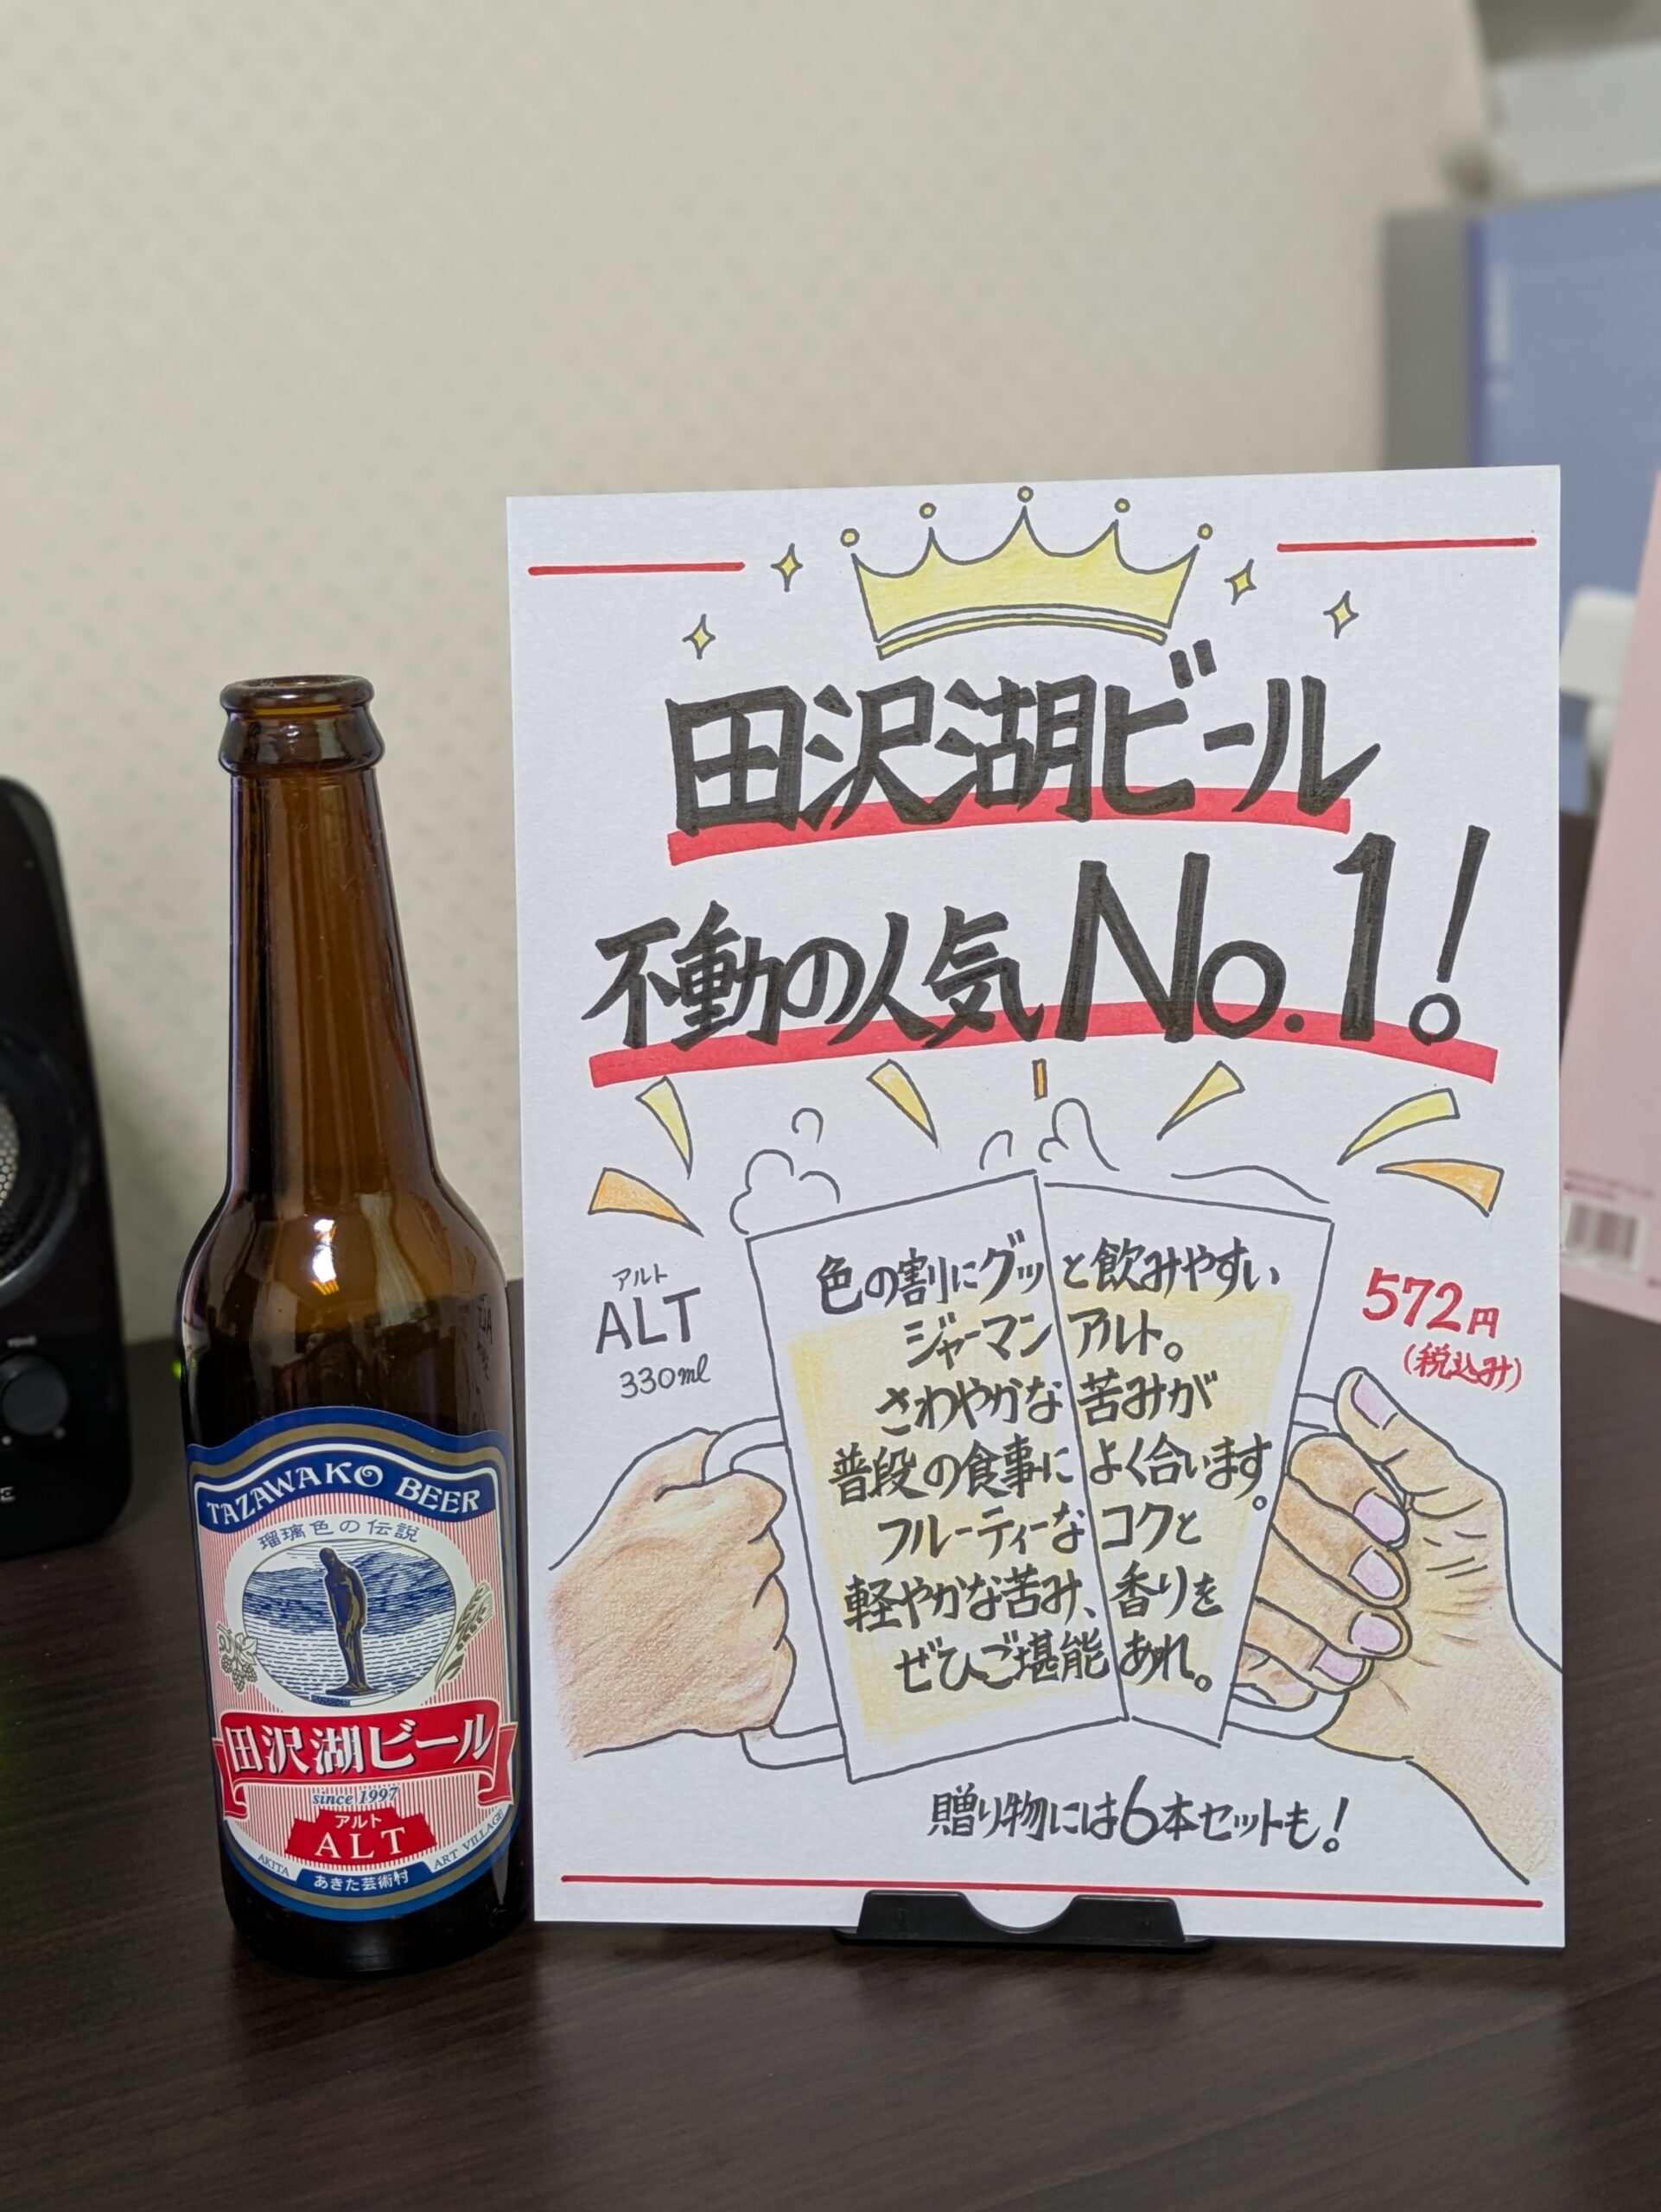 田沢湖ビール
不動の人気No.1!
アルト
ALT
330ml
色の割にグッと飲みやすい
ジャーマンアルト。
さわやかな苦みが
普段の食事によく合います。
フルーティーなコクと
軽やかな苦み、香りを
ぜひご堪能あれ。
572円
(税込み)
贈り物には6本セットも!
TAZAWAKO BEER
瑠璃色の伝説
田沢湖ビール
since 1997
アルト
ALT
AKITA ART VILLAGE
あきた芸術村